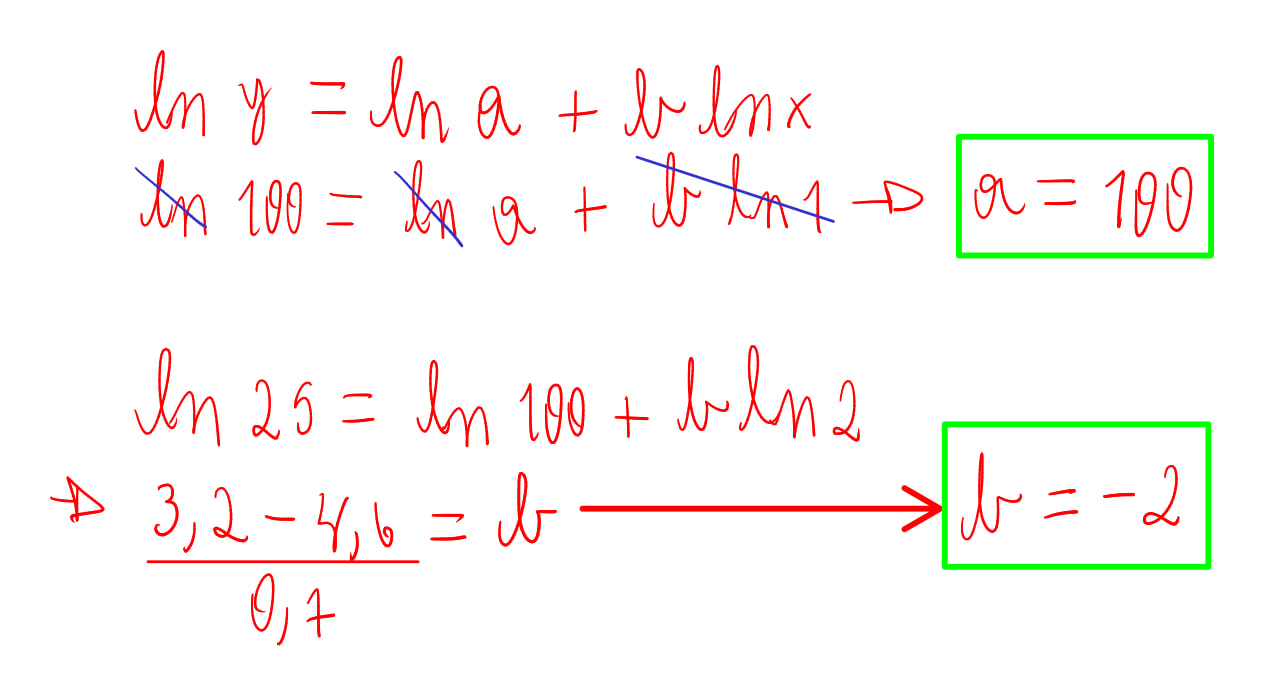 ln y = ln a + b ln x
ln 100 = ln a + b ln 1 → a = 100
ln 25 = ln 100 + b ln 2
→ 3,2 - 4,6 / 0,7 = b → b = -2